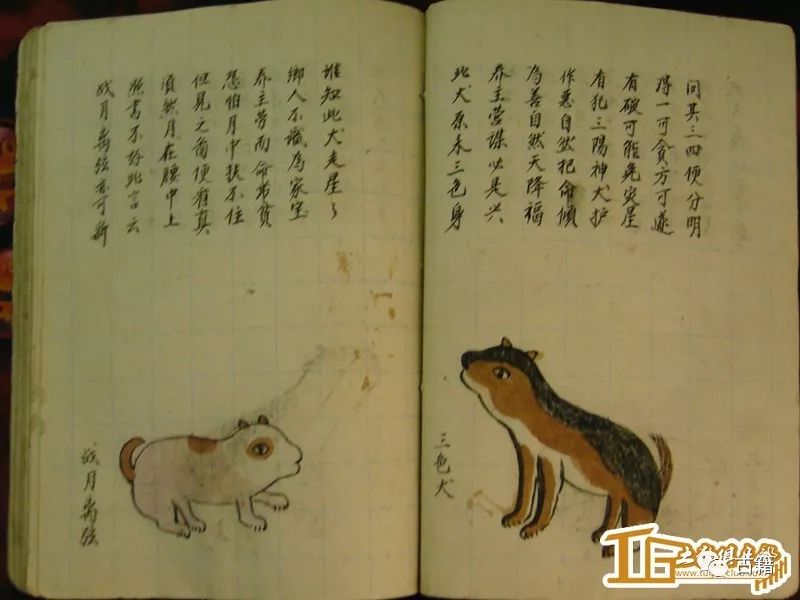 残月离弦亦可新
照書不好此言云
須然月在腰中上
但見之前便有真
恐怕月中扶不住
养主劳而命带貧
鄉人不識為家宝
谁知此犬走星々
残月离弦
此犬原来三色身
养主营謀必是兴
為善自然天降福
作惡自然把命傾
有犯三陽神犬护
有破可能免灾星
得一可貪方可遂
问其三四便分明
三色犬
古籍